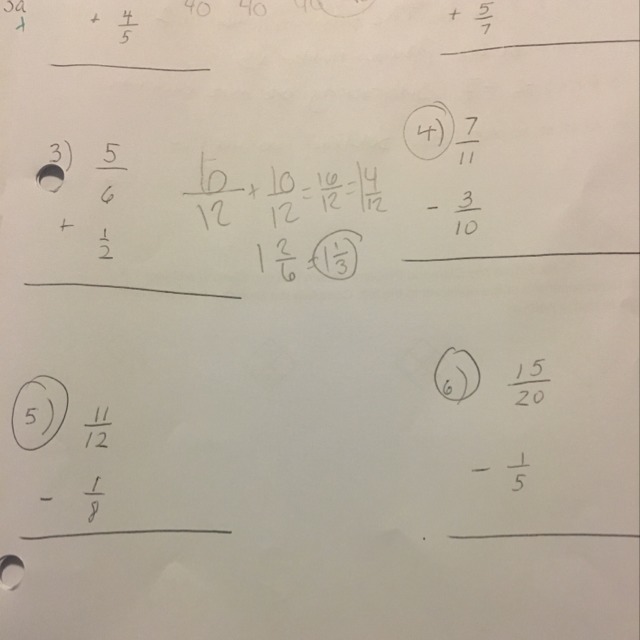 3a
+ 4/5
40 40 40
+ 5/7
3) 5/6
+ 1/2
6/12 + 10/12 = 16/12 = 1 4/12
1 2/6 = 1 1/3
4) 7/11
- 3/10
5) 11/12
- 1/8
6) 15/20
- 1/5